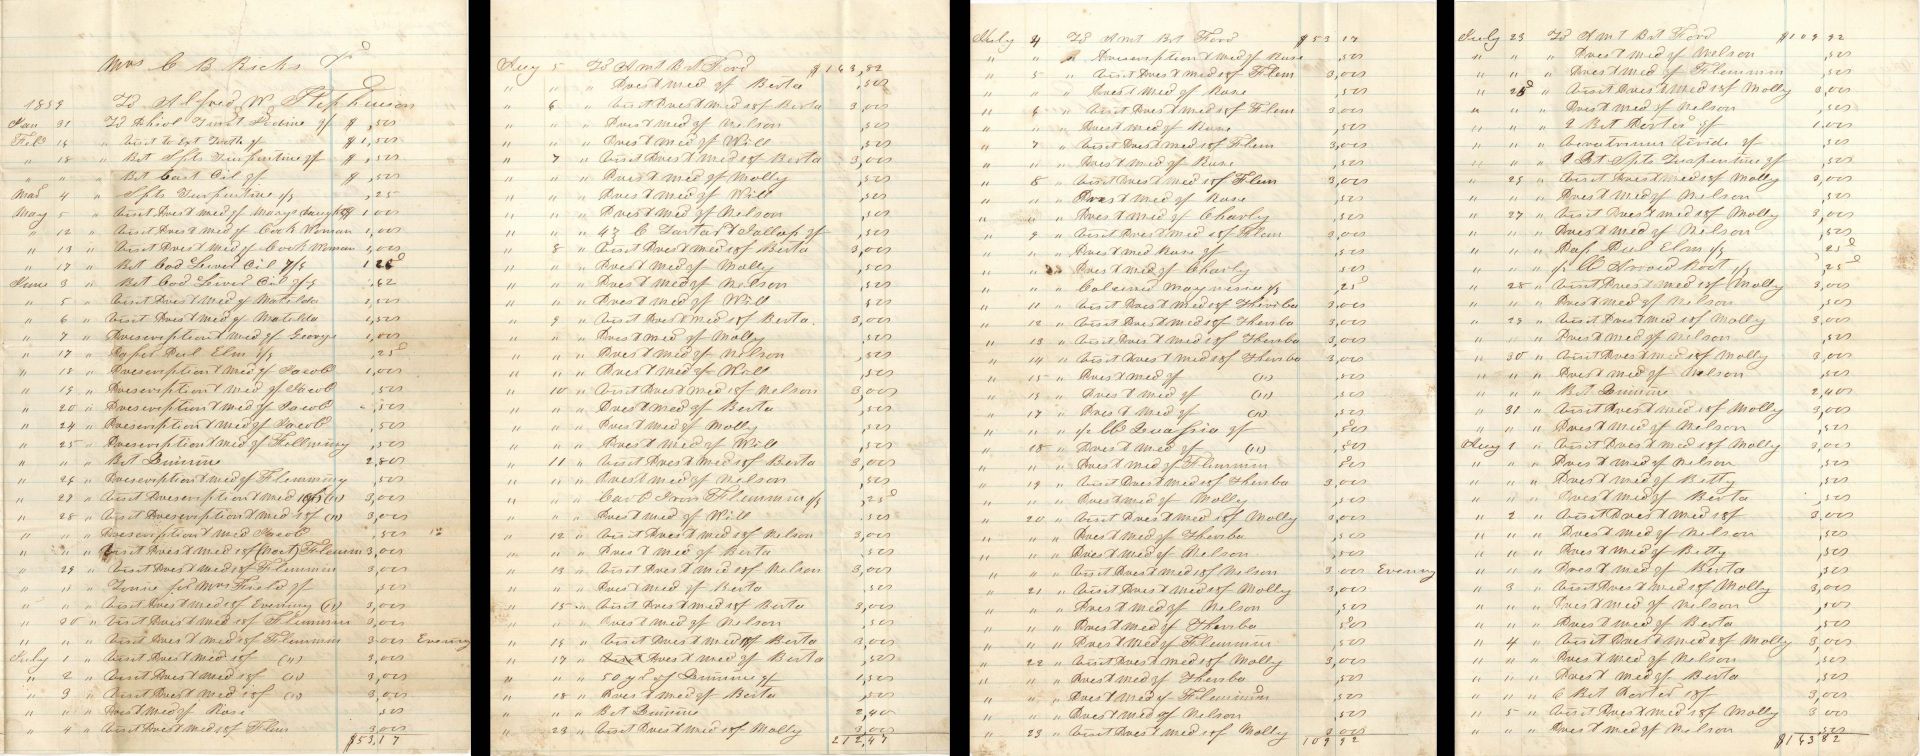 Mrs C B Ricks Dr
1859 To Alfred W. Stephenson
Jan 31 To Phiol Tinct Iodine pf $ ,50
Feb 14 " Visit to Ext Tooth pf $ 1,50
" 18 " Bot Spts Turpentine pf $ ,50
" " " Bot Cast Oil pf $ ,50
Mar 4 " Spts Turpentine p/s ,25
May 5 " Visit Pres & Med pf Marys daughter 1 00
" 12 " Visit Pres & Med pf Cook Woman 1,00
" 13 " Visit Pres & Med pf Cook Woman 1,00
" 17 " Bot Cod Liver Oil p/s 1 25
June 3 " Bot Cod Liver Oil p/s ,62
" 5 " Visit Pres & Med pf Matilda 1,50
" 6 " Visit Pres & Med pf Matilda 1,50
" 7 " Prescription & Med pf George 1,00
" 17 " Paper Pul Elm p/s ,25
" 18 " Prescription & Med pf Jacob 1,00
" 19 " Prescription & Med pf Jacob ,50
" 20 " Prescription & Med pf Jacob ,50
" 24 " Prescription & Med pf Jacob ,50
" 25 " Prescription & Med pf Flemming ,50
" " " Bot Quinine 2,80
" 26 " Prescription & Med pf Flemming ,50
" 27 " Visit Prescription & Med pf (") 3,00
" 28 " Visit Prescription & Med pf (") 3,00
" " " Prescription & Med Jacob ,50
" " " Visit Pres & Med pf (Noct) Flemmin 3,00
" 29 " Visit Pres & Med pf Flemmin 3,00
" " " Tonic for Mrs Field pf ,50
" " " Visit Pres & Med pf Evening (") 3,00
" 30 " Visit Pres & Med pf Flemmin 3,00
" " " Visit Pres & Med pf Flemmin 3 00 Evening
July 1 " Visit Pres & Med pf (") 3,00
" 2 " Visit Pres & Med pf (") 3,00
" 3 " Visit Pres & Med pf (") 3,00
" " " Pres & Med pf Rose ,50
" 4 " Visit Pres & Med pf Flem 3,00
$53,17
Aug 5 To Amt Bt Ford $ 163,82
" " " Pres & Med pf Berta ,50
" 6 " Visit Pres & Med pf Berta 3,00
" " " Pres & Med pf Nelson ,50
" " " Pres & Med pf Will ,50
" 7 " Visit Pres & Med pf Berta 3,00
" " " Pres & Med pf Molly ,50
" " " Pres & Med pf Will ,50
" " " Pres & Med pf Nelson ,50
" " " C Tartar & Jallap pf ,50
" 8 " Visit Pres & Med pf Berta 3,00
" " " Pres & Med pf Molly ,50
" " " Pres & Med pf Nelson ,50
" " " Pres & Med pf Will ,50
" 9 " Visit Pres & Med pf Berta. 3,00
" " " Pres & Med pf Molly ,50
" " " Pres & Med pf Nelson ,50
" " " Pres & Med pf Will ,50
" 10 " Visit Pres & Med pf Nelson 3,00
" " " Pres & Med pf Berta ,50
" " " Pres & Med pf Molly ,50
" " " Pres & Med pf Will ,50
" 11 " Visit Pres & Med pf Berta 3,00
" " " Pres & Med pf Nelson ,50
" " " Carb Iron Flemmin p/s ,25
" " " Pres & Med pf Will ,50
" 12 " Visit Pres & Med pf Nelson 3,00
" " " Pres & Med pf Berta ,50
" 13 " Visit Pres & Med pf Nelson 3,00
" " " Pres & Med pf Berta ,50
" 15 " Visit Pres & Med pf Berta 3,00
" " " Pres & Med pf Nelson ,50
" 16 " Visit Pres & Med pf Berta 3,00
" 17 " Pres & Med pf Berta ,50
" " " 50 grs of Quinine pf 1,50
" 18 " Pres & Med pf Berta ,50
" " " Bot Quinine 2,40
" 23 " Visit Pres & Med pf Molly 3,00
212,47
July 4 To Amt Bt Ford $53 17
" " " Prescription & Med pf Rose ,50
" 5 " Visit Pres & Med pf Flem 3,00
" " " Pres & Med pf Rose ,50
" 6 " Visit Pres & Med pf Flem 3,00
" " " Pres & Med pf Rose ,50
" 7 " Visit Pres & Med pf Flem 3,00
" " " Pres & Med pf Rose ,50
" 8 " Visit Pres & Med pf Flem 3,00
" " " Pres & Med pf Rose ,50
" " " Pres & Med pf Charly ,50
" 9 " Visit Pres & Med pf Flem 3,00
" " " Pres & Med Rose pf ,50
" " " Pres & Med pf Charly ,50
" " " Calcined Magnesia p/s ,25
" 11 " Visit Pres & Med pf Thersba 3,00
" 12 " Visit Pres & Med pf Thersba 3,00
" 13 " Visit Pres & Med pf Thersba 3,00
" 14 " Visit Pres & Med pf Thersba 3,00
" 15 " Pres & Med pf (") ,50
" 15 " Pres & Med pf (") ,50
" 17 " Pres & Med pf (") ,50
" " " lb Quassia pf ,50
" 18 " Pres & Med pf (") ,50
" " " Pres & Med pf Flemmin ,50
" 19 " Visit Pres & Med pf Thersba 3,00
" " " Pres & Med pf Molly ,50
" 20 " Visit Pres & Med pf Molly 3,00
" " " Pres & Med pf Thersba ,50
" " " Pres & Med pf Nelson ,50
" " " Visit Pres & Med pf Nelson 3 00 Evening
" 21 " Visit Pres & Med pf Molly 3,00
" " " Pres & Med pf Nelson ,50
" " " Pres & Med pf Thersba ,50
" " " Pres & Med pf Flemmin ,50
" 22 " Visit Pres & Med pf Molly 3,00
" " " Pres & Med pf Thersba ,50
" " " Pres & Med pf Flemmin ,50
" " " Pres & Med pf Nelson ,50
" 23 " Visit Pres & Med pf Molly 3,00
109 92
July 23 To Amt Bt Ford $109 92
" " " Pres & Med pf Nelson ,50
" " " Pres & Med pf Flemmin ,50
" 25 " Visit Pres & Med pf Molly 3,00
" " " Pres & Med pf Nelson ,50
" " " 2 Bot Porter pf 1.00
" " " Veratrum Viride pf ,50
" " " 1 Bt Spts Turpentine pf ,50
" 25 " Visit Pres & Med pf Molly 3,00
" " " Pres & Med pf Nelson ,50
" 27 " Visit Pres & Med pf Molly 3,00
" " " Pres & Med pf Nelson ,50
" " " Pap Pul Elm p/s ,25
" " " lb Arrow Root p/s ,25
" 28 " Visit Pres & Med pf Molly 3,00
" " " Pres & Med pf Nelson ,50
" 29 " Visit Pres & Med pf Molly 3,00
" " " Pres & Med pf Nelson ,50
" 30 " Visit Pres & Med pf Molly 3,00
" " " Pres & Med pf Nelson ,50
" " " Bot Quinine 2,40
" 31 " Visit Pres & Med pf Molly 3,00
" " " Pres & Med pf Nelson ,50
Aug 1 " Visit Pres & Med pf Molly 3,00
" " " Pres & Med pf Nelson ,50
" " " Pres & Med pf Betty ,50
" " " Pres & Med pf Berta ,50
" 2 " Visit Pres & Med pf Molly 3,00
" " " Pres & Med pf Nelson ,50
" " " Pres & Med pf Betty ,50
" " " Pres & Med pf Berta ,50
" 3 " Visit Pres & Med pf Molly 3,00
" " " Pres & Med pf Nelson ,50
" " " Pres & Med pf Berta ,50
" 4 " Visit Pres & Med pf Molly 3,00
" " " Pres & Med pf Nelson ,50
" " " Pres & Med pf Berta ,50
" " " 6 Bot Porter pf 3,00
" 5 " Visit Pres & Med pf Molly 3 00
" " " Pres & Med pf Nelson ,50
$163 82